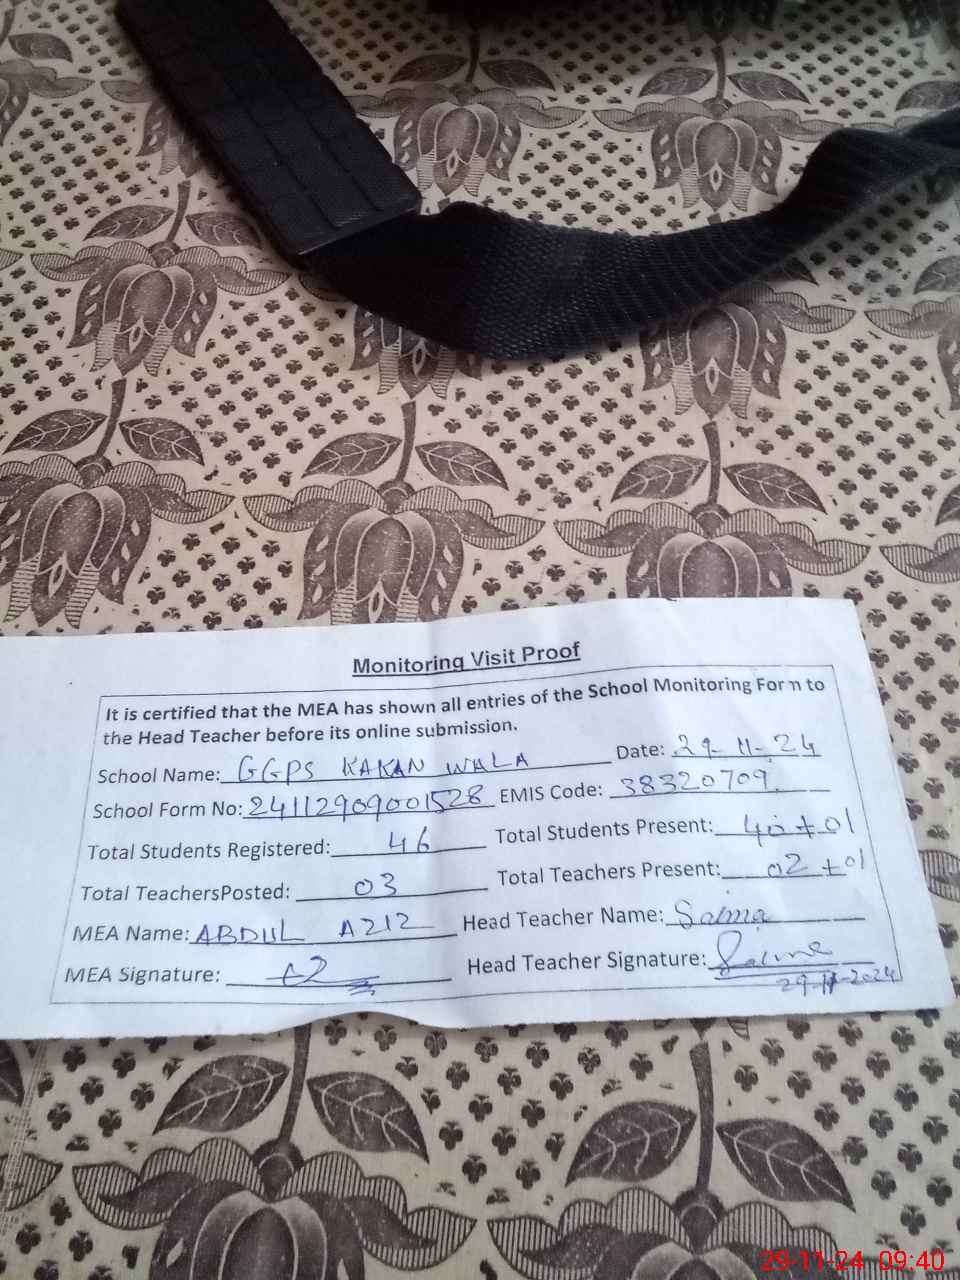 Monitoring Visit Proof
It is certified that the MEA has shown all entries of the School Monitoring Form to
the Head Teacher before its online submission.
School Name: GGPS KAKAN WALA Date: 29-11-24
School Form No: 24112909001528 EMIS Code: 38320709
Total Students Registered: 46 Total Students Present: 40 + 01
Total TeachersPosted: 03 Total Teachers Present: 02 + 01
MEA Name: ABDUL AZIZ Head Teacher Name: Salma
MEA Signature: Head Teacher Signature: Salma
29-11-2024
29-11-24 09:40